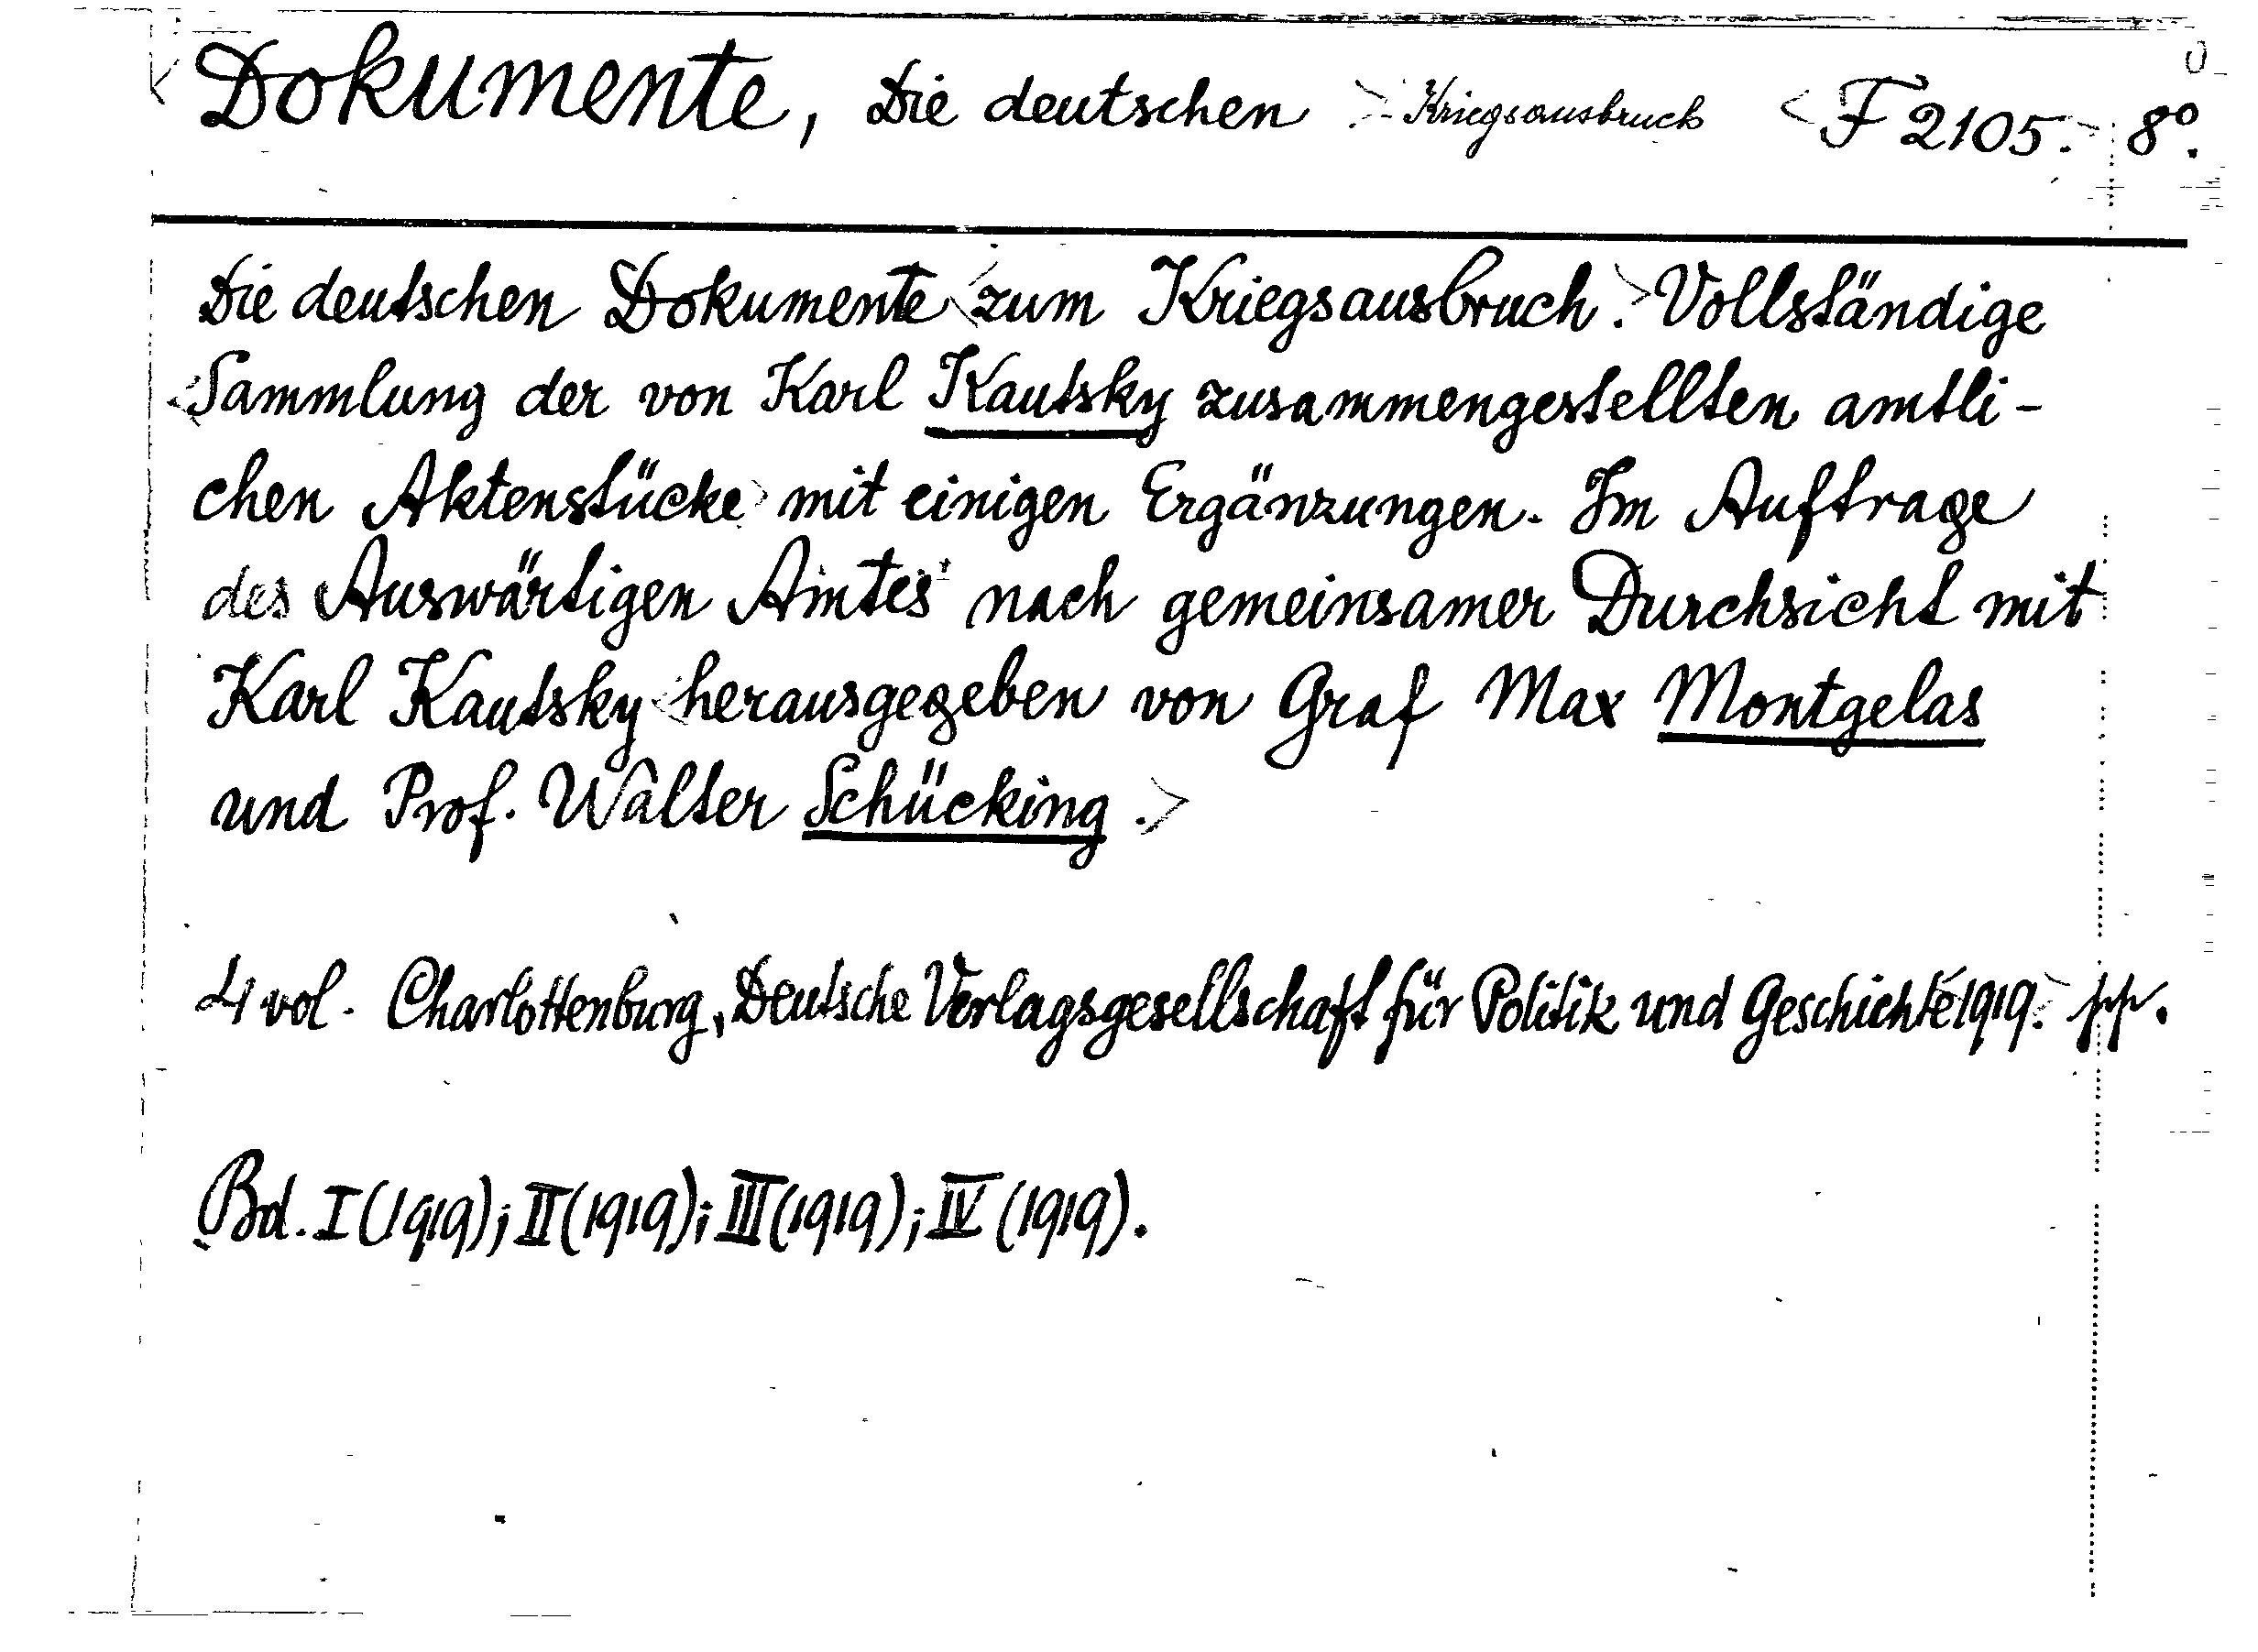 Dokumente, Die deutschen Kriegsausbruck F 2105. 8º.
Die deutschen Dokumente zum Kriegsausbruch. Vollständige
Sammlung der von Karl Kautsky zusammengestellten amtli-
chen Aktenstücke mit einigen Ergänzungen. Im Auftrage
des Auswärtigen Amtes nach gemeinsamer Durchsicht mit
Karl Kautsky herausgegeben von Graf Max Montgelas
und Prof. Walter Schücking.
4 vol. Charlottenburg, Deutsche Verlagsgesellschaft für Politik und Geschichte 1919. pp.
Bd. I (1919); II (1919); III (1919); IV (1919).